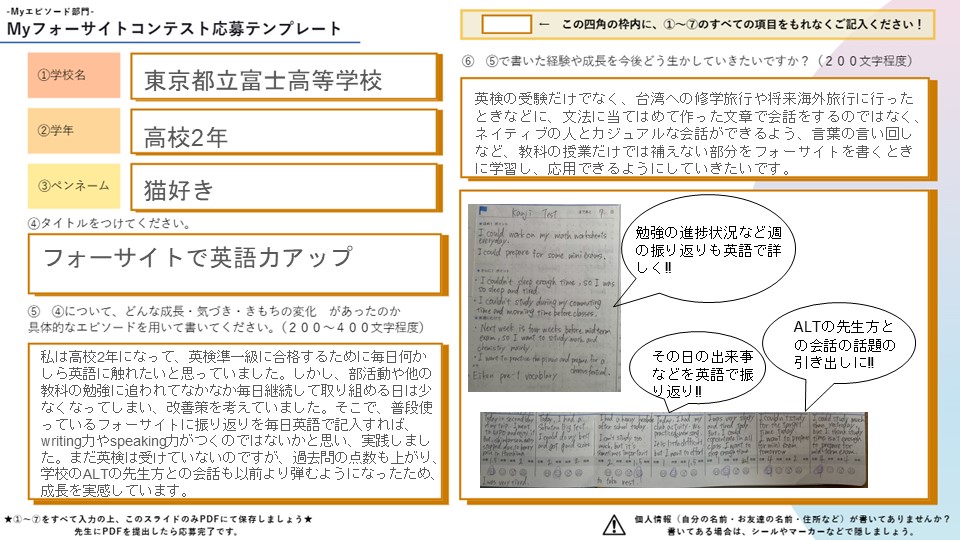 -Myエピソード部門-
Myフォーサイトコンテスト応募テンプレート
← この四角の枠内に、①～⑦のすべての項目をもれなくご記入ください！
①学校名
東京都立富士高等学校
②学年
高校2年
③ペンネーム
猫好き
④タイトルをつけてください。
フォーサイトで英語力アップ
⑤ ④について、どんな成長・気づき・きもちの変化 があったのか
具体的なエピソードを用いて書いてください。（２００～４００文字程度）
私は高校2年になって、英検準一級に合格するために毎日何か
しら英語に触れたいと思っていました。しかし、部活動や他の
教科の勉強に追われてなかなか毎日継続して取り組める日は少
なくなってしまい、改善策を考えていました。そこで、普段使
っているフォーサイトに振り返りを毎日英語で記入すれば、
writing力やspeaking力がつくのではないかと思い、実践しまし
た。まだ英検は受けていないのですが、過去問の点数も上がり、
学校のALTの先生方との会話も以前より弾むようになったため、
成長を実感しています。
⑥ ⑤で書いた経験や成長を今後どう生かしていきたいですか？（２００文字程度）
英検の受験だけでなく、台湾への修学旅行や将来海外旅行に行った
ときなどに、文法に当てはめて作った文章で会話をするのではなく、
ネイティブの人とカジュアルな会話ができるよう、言葉の言い回し
など、教科の授業だけでは補えない部分をフォーサイトを書くとき
に学習し、応用できるようにしていきたいです。
Kanji Test
I could work on my math worksheets
everyday.
I could prepare for some mini exams.
・I couldn't sleep enough time, so I was
so sleep and tired.
・I couldn't study during my commuting
time and morning time before classes.
・Next week is four weeks before midterm
exam, so I want to study math and
chemistry mainly
・I want to practice the piano and prepare for a
Eiken pre-1 vocabulary
勉強の進捗状況など週
の振り返りも英語で詳
しく!!
その日の出来事
などを英語で振
り返り!!
ALTの先生方と
の会話の話題の
引き出しに!!
★①～⑦をすべて入力の上、このスライドのみPDFにて保存しましょう★
先生にPDFを提出したら応募完了です。
個人情報（自分の名前・お友達の名前・住所など）が書いてありませんか？
書いてある場合は、シールやマーカーなどで隠しましょう。